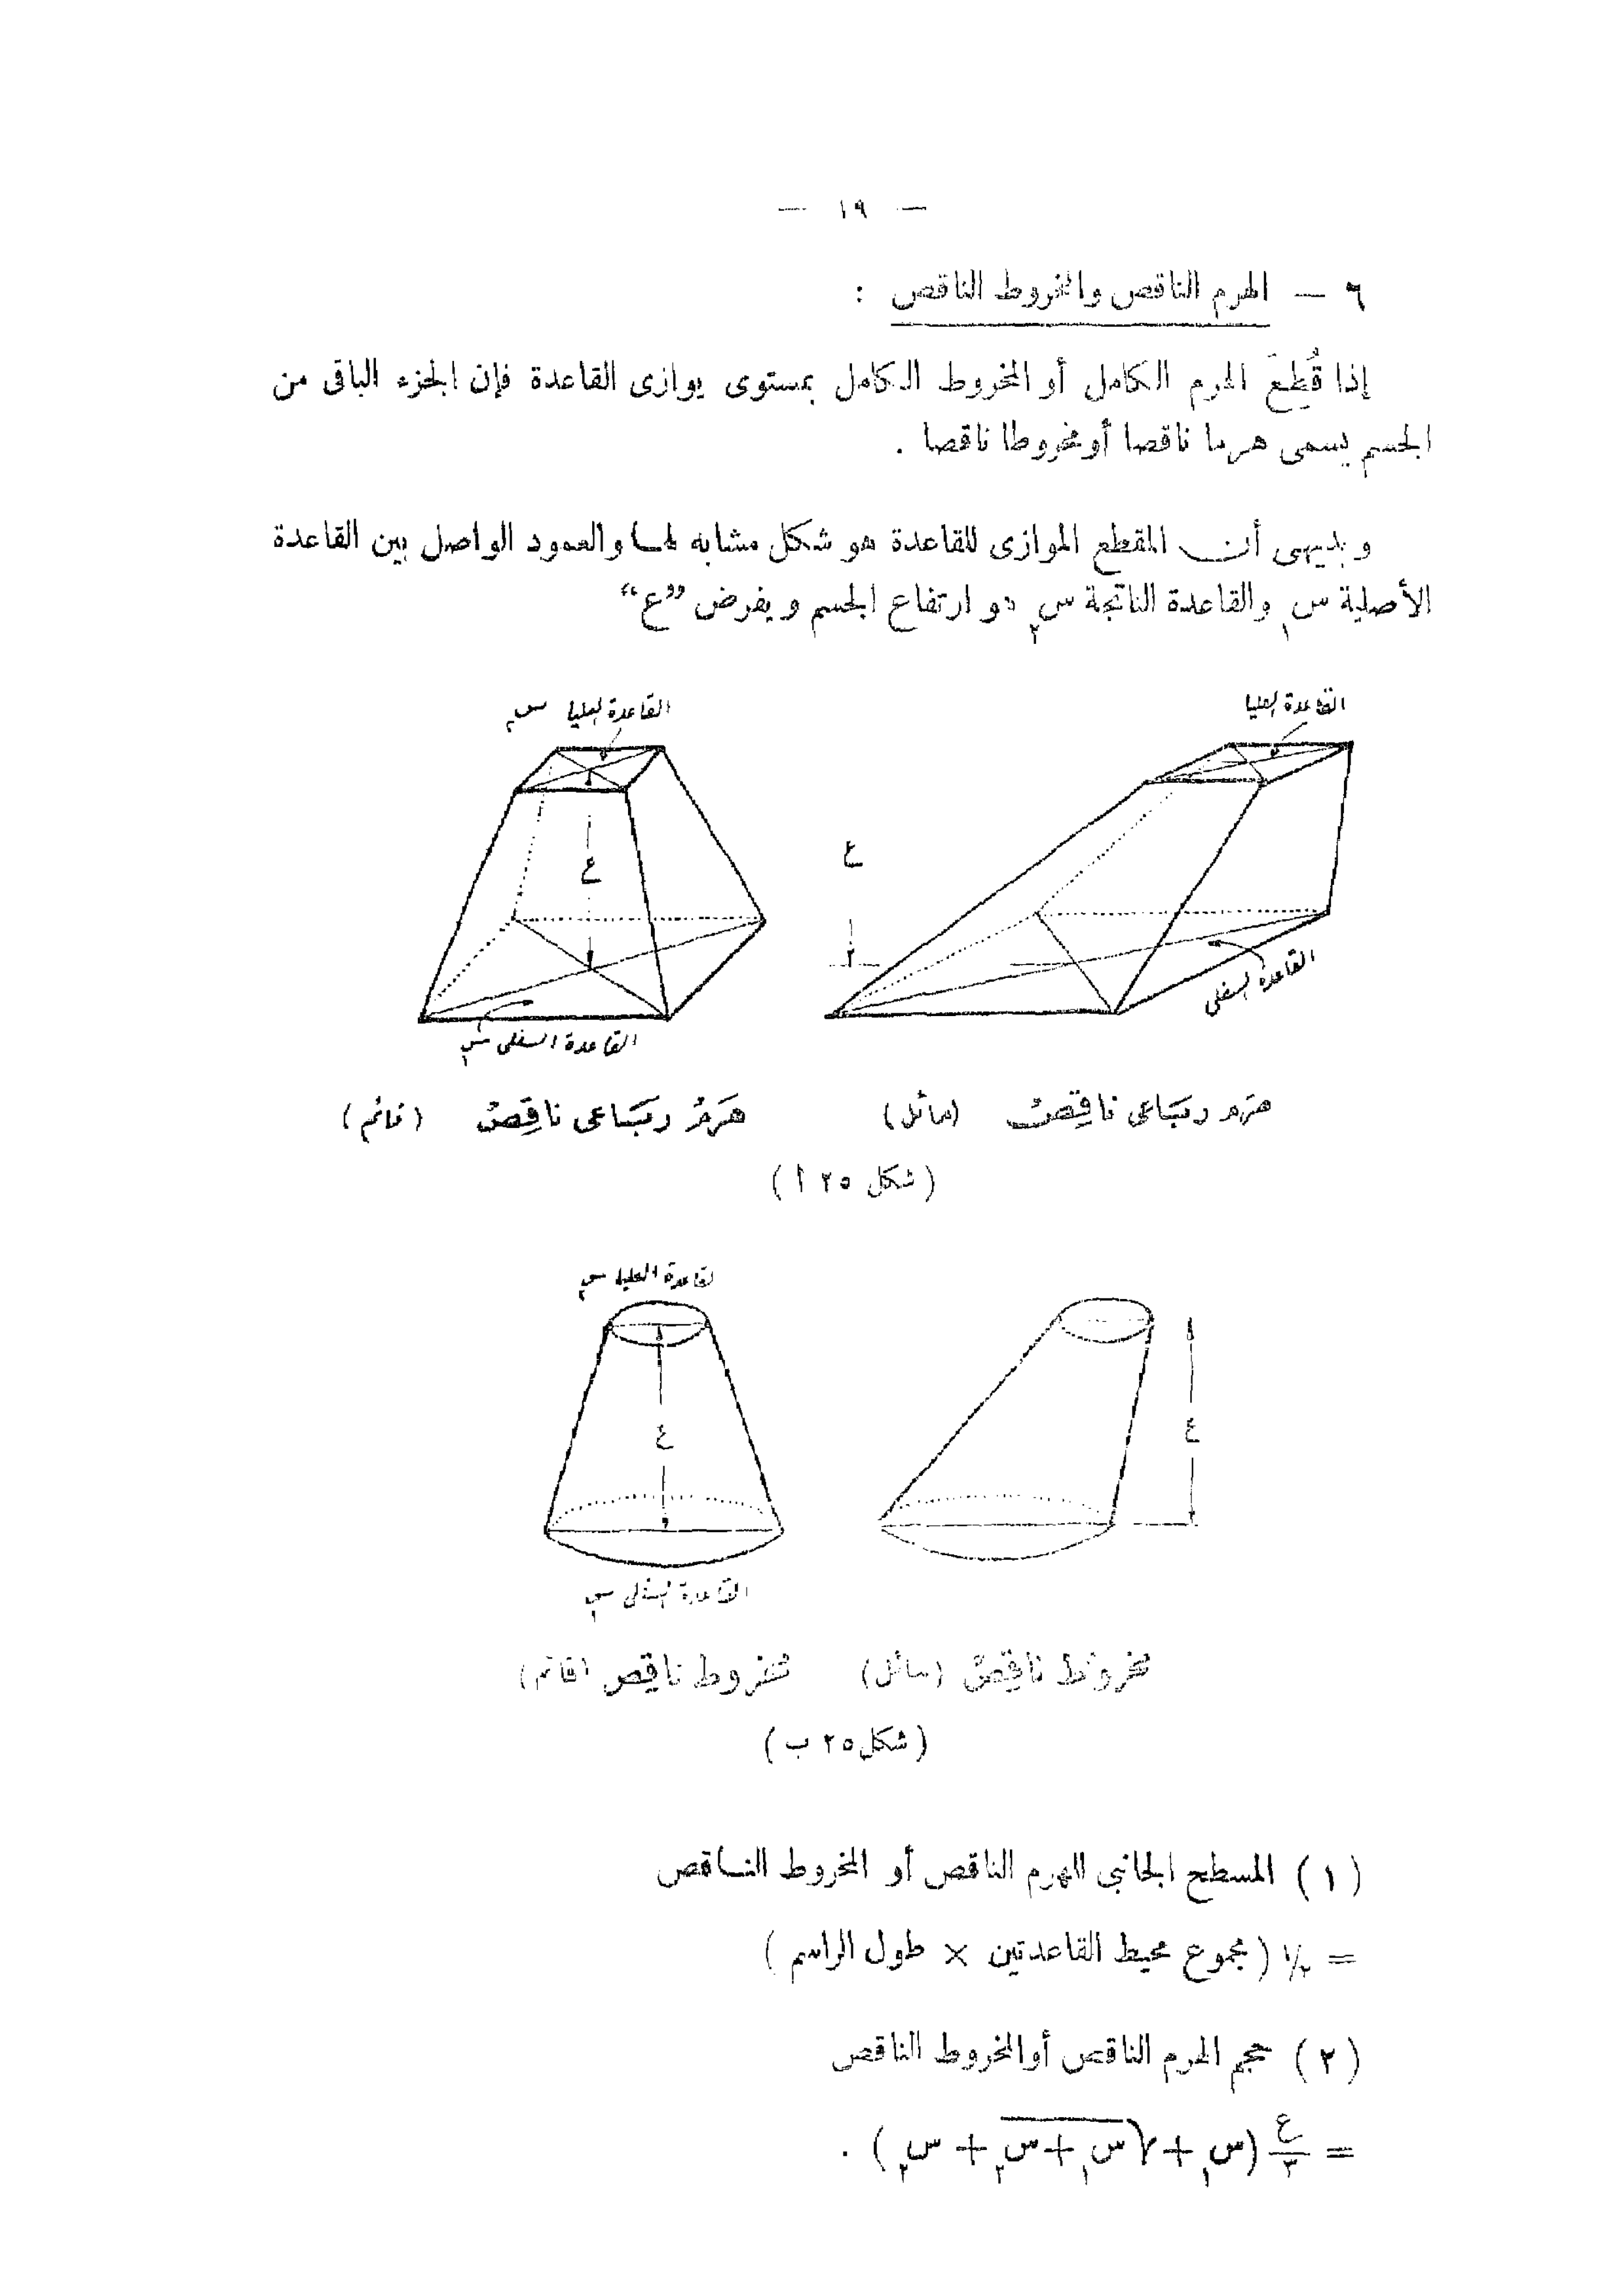 — ١٩ —
٦ — الهرم الناقص والمخروط الناقص :
إذا قُطِعَ الهرم الكامل أو المخروط الكامل بمستوى يوازى القاعدة فإن الجزء الباقى من
الجسم يسمى هرما ناقصا أو مخروطا ناقصا .
وبديهى أن المقطع الموازى للقاعدة هو شكل مشابه لها والعمود الواصل بين القاعدة
الأصلية س١ والقاعدة الناتجة س٢ هو ارتفاع الجسم ويفرض ”ع“
القاعدة العليا
القاعدة العليا س٢
ع
ع
القاعدة السفلى
القاعدة السفلى س١
هرم رباعى ناقِصْ (مائل)
هَرَمْ رباعى ناقِصْ (قائم)
(شكل ٢٥ أ)
لقاعدة العليا س٢
ع
ع
القاعدة السفلى س١
مخروط ناقِصْ (مائل)
مخروط ناقِص (قائم)
(شكل ٢٥ ب)
(١) المسطح الجانبى للهرم الناقص أو المخروط الناقص
= ١/٢ (مجموع محيط القاعدتين × طول الراسم)
(٢) حجم الهرم الناقص أو المخروط الناقص
= ع/٣ (س١ + √(س١ + س٢) + س٢) .